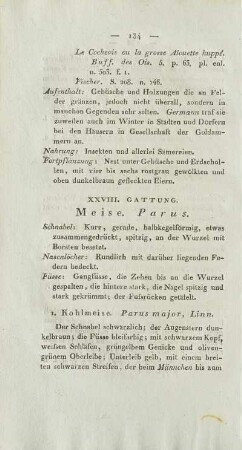 — 134 —
Le Cochevis ou la grosse Alouette huppé.
Buff. des Ois. 5. p. 63. pl. enl.
n. 503. f. 1.
Fischer. S. 208. n. 168.
Aufenthalt: Gebüsche und Holzungen die an Felder
gränzen, jedoch nicht überall, sondern in
manchen Gegenden sehr selten. Germann traf sie
zuweilen auch im Winter in Städten und Dörfern
bei den Häusern in Gesellschaft der Goldammern
an.
Nahrung: Insekten und allerlei Sämereien.
Fortpflanzung: Nest unter Gebüsche und Erdschollen,
mit vier bis sechs rostgrau gewölkten und
oben dunkelbraun gefleckten Eiern.
XXVIII. GATTUNG.
Meise. Parus.
Schnabel: Kurz, gerade, halbkegelförmig, etwas
zusammengedrückt, spitzig, an der Wurzel mit
Borsten besetzt.
Nasenlöcher: Rundlich mit darüber liegenden Federn
bedeckt.
Füsse: Gangfüsse, die Zehen bis an die Wurzel
gespalten, die hintere stark, die Nägel spitzig und
stark gekrümmt; der Fufsrücken getäfelt.
1. Kohlmeise. Parus major, Linn.
Der Schnabel schwärzlich; der Augenstern dunkelbraun;
die Füsse bleifarbig; mit schwarzem Kopf,
weifsen Schläfen, grüngelbem Genicke und olivengrünem
Oberleibe; Unterleib gelb, mit einem breiten
schwarzen Streifen, der beim Männchen bis zum